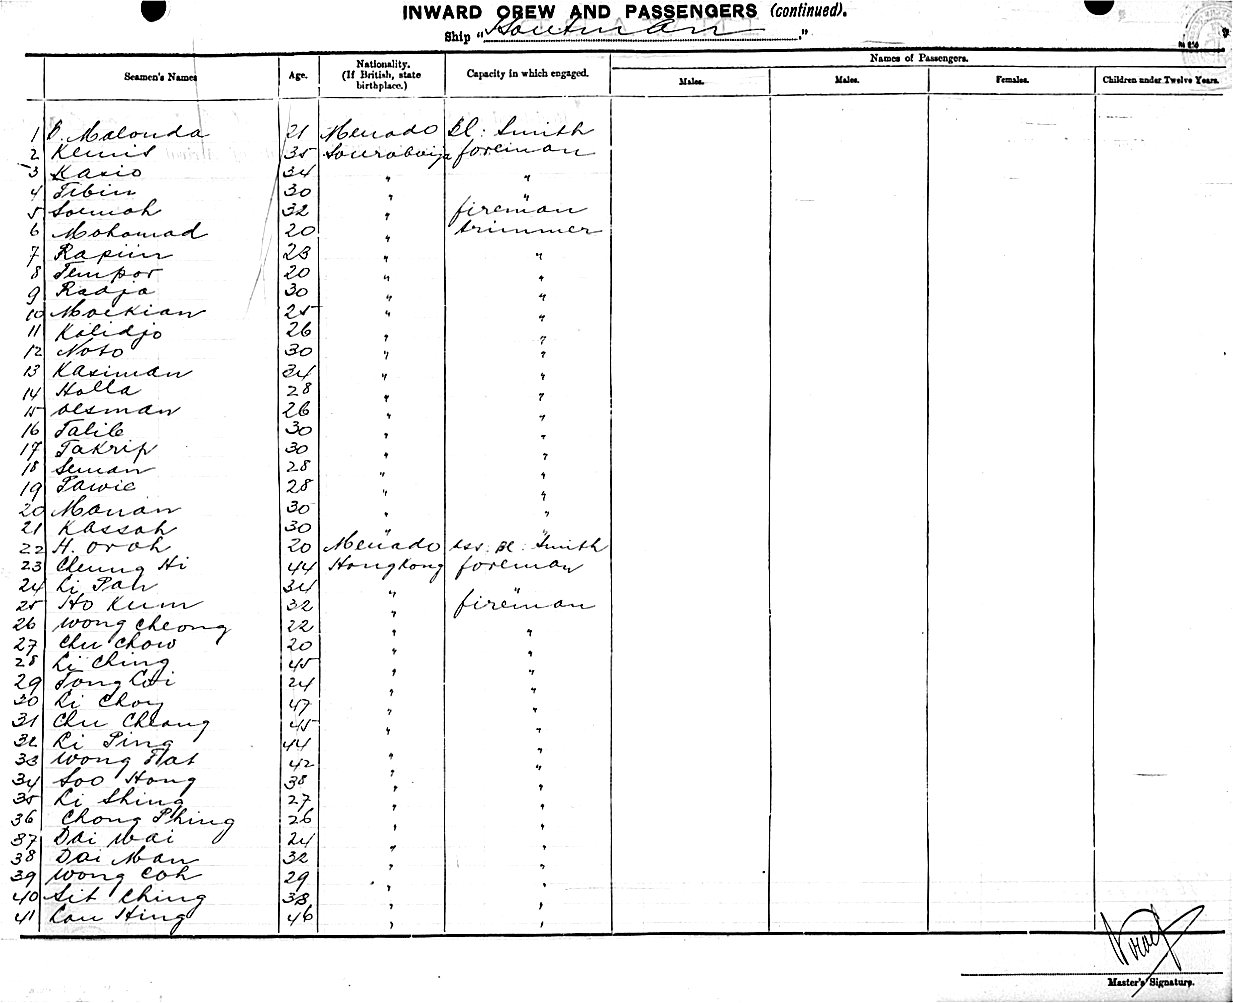 INWARD CREW AND PASSENGERS (continued).
Ship "Houtman."
Seamen's Names Age. Nationality. (If British, state birthplace.) Capacity in which engaged. Names of Passengers.
Males. Males. Females. Children under Twelve Years.
1 Malonda 21 Menado Bl: Smith
2 Kemis 35 Sourabaija foreman
3 Kasio 34 " "
4 Tibin 30 " "
5 Soemoh 32 " fireman
6 Mohamad 20 " trimmer
7 Rapiin 23 " "
8 Tempor 20 " "
9 Radja 30 " "
10 Moekian 25 " "
11 Kalidjo 26 " "
12 Noto 30 " "
13 Kasiman 34 " "
14 Holla 28 " "
15 Oesman 26 " "
16 Talib 30 " "
17 Takrip 30 " "
18 Seman 28 " "
19 Tawie 28 " "
20 Manan 30 " "
21 Kassah 30 " "
22 H. Oroh 20 Menado ass. Bl: Smith
23 Cheung Hi 44 Hongkong foreman
24 Li Pan 34 " "
25 Ho Kum 32 " fireman
26 Wong Cheong 22 " "
27 Chu Chow 20 " "
28 Li Ching 45 " "
29 Tong 24 " "
30 Li Choy 47 " "
31 Chu Cheong 45 " "
32 Li Ping 44 " "
33 Wong Tat 42 " "
34 Soo Hong 38 " "
35 Li Shing 27 " "
36 Chong Phing 26 " "
37 Dai Wai 24 " "
38 Dai Man 32 " "
39 Wong Coh 29 " "
40 Sit Ching 38 " "
41 Lau Hing 46 " "
Master's Signature.